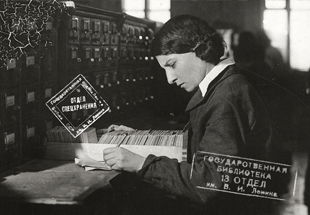 Государственная
ОТДЕЛ
СПЕЦХРАНЕНИЯ
ГОСУДАРСТВЕННАЯ
БИБЛИОТЕКА
13 ОТДЕЛ
им. В. И. Ленина